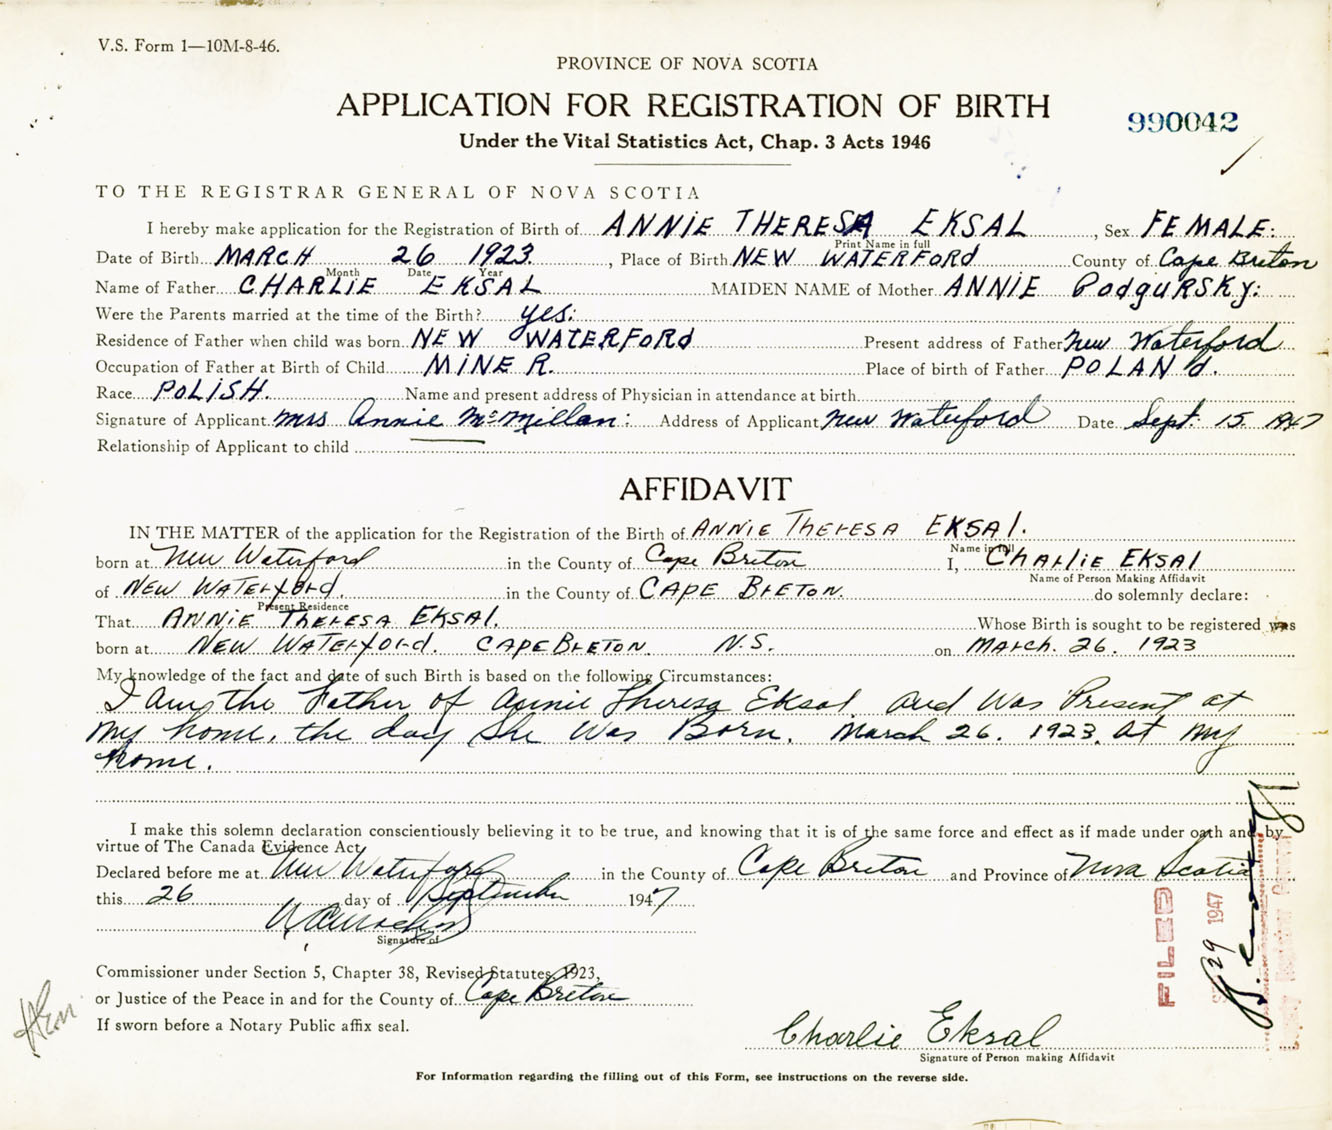 V.S. Form 1—10M-8-46.
PROVINCE OF NOVA SCOTIA
APPLICATION FOR REGISTRATION OF BIRTH
990042
Under the Vital Statistics Act, Chap. 3 Acts 1946
TO THE REGISTRAR GENERAL OF NOVA SCOTIA
I hereby make application for the Registration of Birth of ANNIE THERESA EKSAL, Sex FEMALE.
Print Name in full
Date of Birth MARCH 26 1923, Place of Birth NEW WATERFORD County of Cape Breton
Month Date Year
Name of Father CHARLIE EKSAL MAIDEN NAME of Mother ANNIE PodgURSKy:
Were the Parents married at the time of the Birth? yes:
Residence of Father when child was born NEW WATERFORD Present address of Father New Waterford
Occupation of Father at Birth of Child MINER. Place of birth of Father POLANd.
Race POLISH. Name and present address of Physician in attendance at birth
Signature of Applicant Mrs Annie McMillan: Address of Applicant New Waterford Date Sept. 15 1947
Relationship of Applicant to child
AFFIDAVIT
IN THE MATTER of the application for the Registration of the Birth of ANNIE THERESA EKSAl.
Name in full
born at New Waterford in the County of Cape Breton I, CHArliE EKSAl
Name of Person Making Affidavit
of NEW WATErford. in the County of CAPE BrETON. do solemnly declare:
Present Residence
That ANNIE THERESA EKSAl. Whose Birth is sought to be registered was
born at NEW WATErford. CAPE BrETON. N.S. on MArch. 26. 1923
My knowledge of the fact and date of such Birth is based on the following Circumstances:
I Am the Father of Annie Theresa Eksal. and Was Present at
My home. the day She Was Born. March 26. 1923. At My
home.
I make this solemn declaration conscientiously believing it to be true, and knowing that it is of the same force and effect as if made under oath and by
virtue of The Canada Evidence Act.
Declared before me at New Waterford in the County of Cape Breton and Province of Nova Scotia
this 26 day of September 1947
Signature of
Commissioner under Section 5, Chapter 38, Revised Statutes, 1923,
or Justice of the Peace in and for the County of Cape Breton
If sworn before a Notary Public affix seal.
Charlie Eksal
Signature of Person making Affidavit
For Information regarding the filling out of this Form, see instructions on the reverse side.
FILED
29 1947